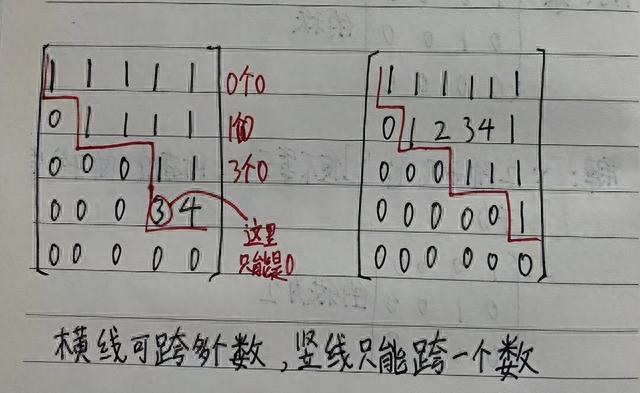 1 1 1 1 1 0个0
0 1 1 1 1 1个0
0 0 0 1 1 3个0
0 0 0 3 4
0 0 0 0 0
这里
只能是0
1 1 1 1 1 1
0 1 2 3 4 1
0 0 0 1 1 1
0 0 0 0 0 1
0 0 0 0 0 0
横线可跨多个数,竖线只能跨一个数